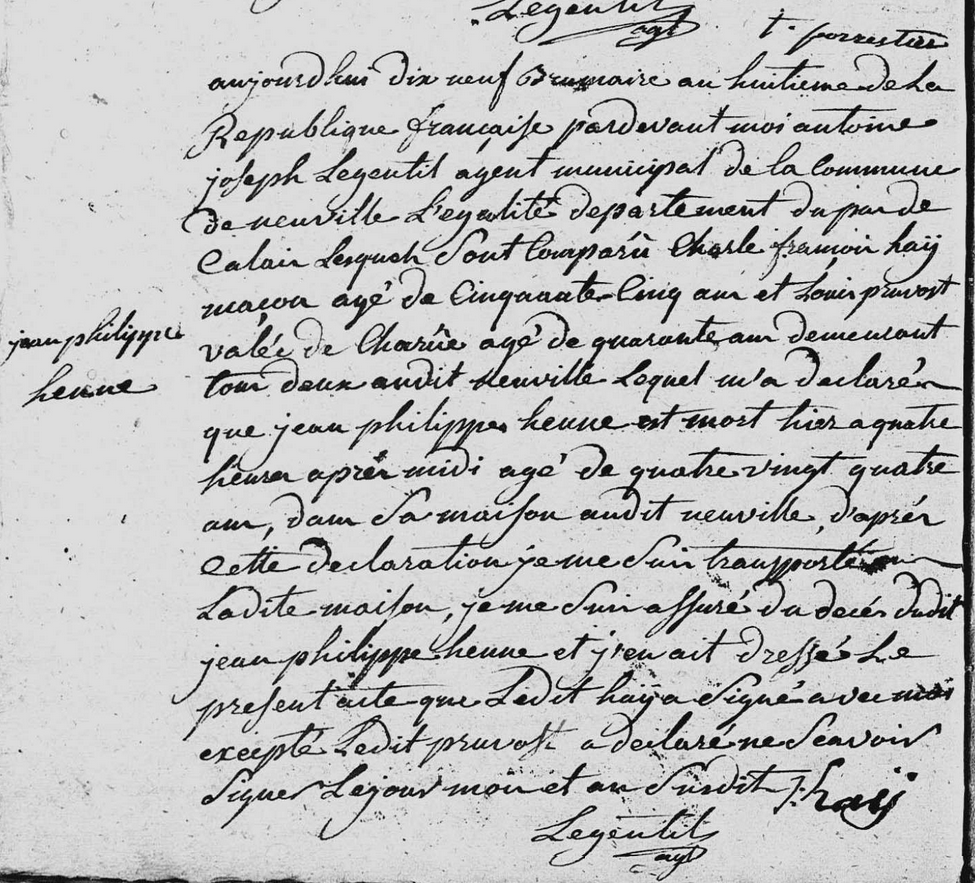 Legentil
agt
t. forrestier
aujourdhui dix neuf Brumaire an huitieme de La
Republique française pardevant moi antoine
joseph Legentil agent municipal de la Commune
de neuville L'egalité departement du pas de
Calais Lesquels Sont Comparû Charle françois haÿ
maçon agé de Cinquante Cinq ans et Louis pruvost
valée de Charûe agé de quarante ans demeurant
tous deux audit neuville Lequel m'a declaré
jean philippe
henne
que jean philippe henne est mort hier a quatre
heures aprés midi agé de quatre vingt quatre
ans, dans Sa maison audit neuville, d'aprés
Cette declaration je me Suis transporté en
Ladite maison, je me Suis assuré du decés dudit
jean philippe henne et j'en ait dressé Le
present acte que Ledit haÿ a Signé avec moi
excepté Ledit pruvost a declaré ne Scavoir
Signer Le jour mois et an Susdit f. haÿ
Legentil
agt